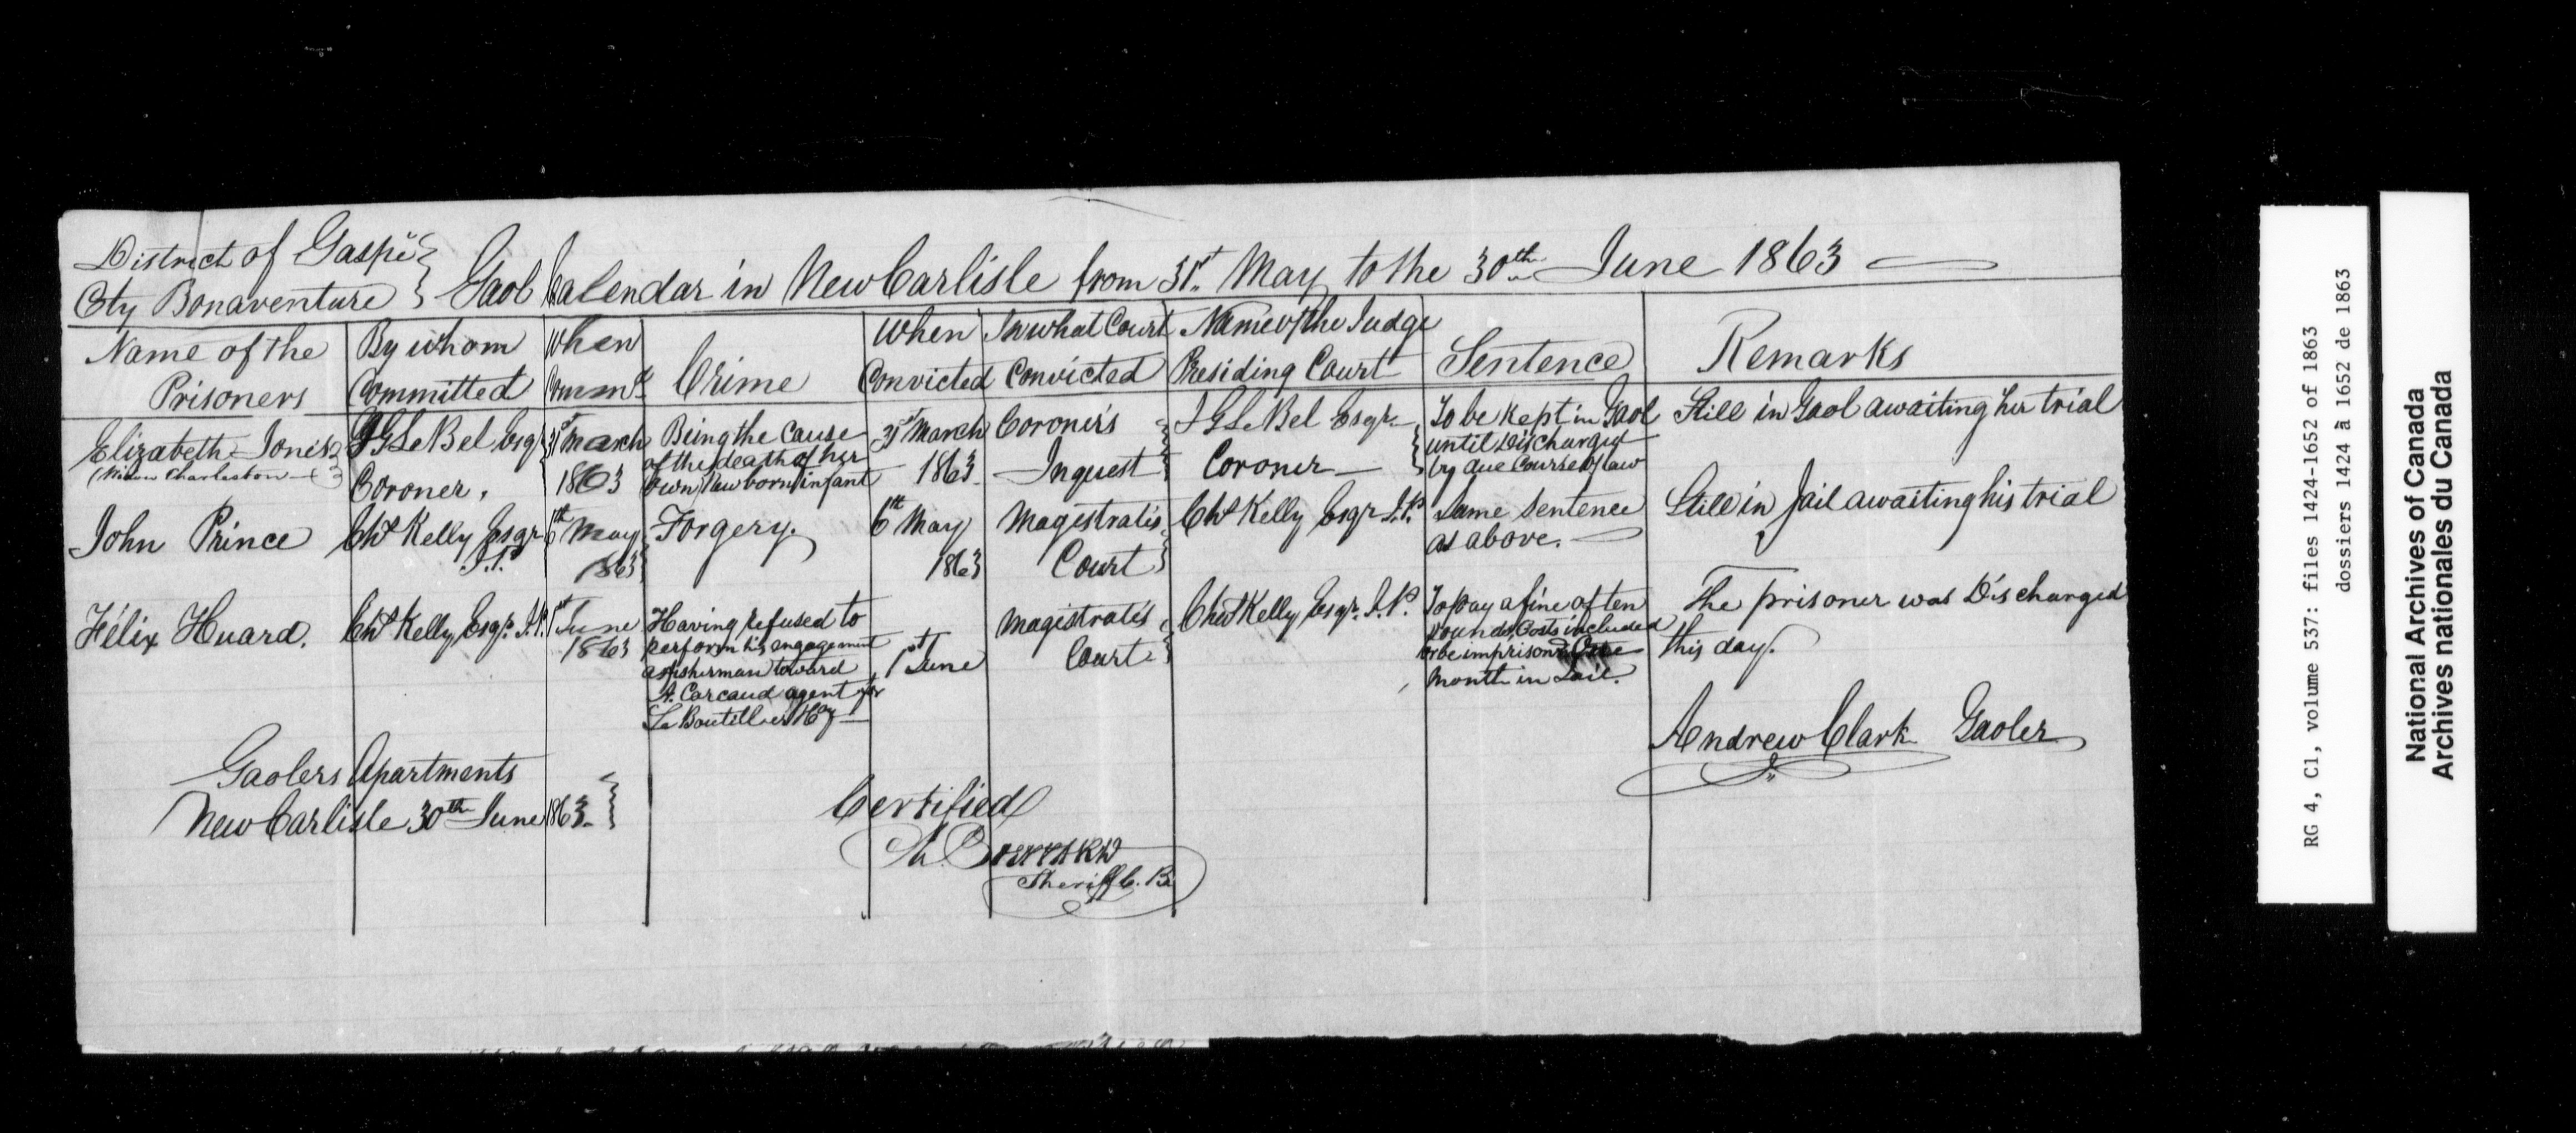 District of Gaspé
Cty Bonaventure } Gaol Calendar in New Carlisle from 31st May to the 30th June 1863
Name of the Prisoners
By whom Committed
When Comm'd
Crime
When Convicted
In what Court Convicted
Name of the Judge Presiding Court
Sentence
Remarks
Elizabeth Jones
Charleston
J G LeBel Esqr
Coroner.
31st March
1863
Being the Cause
of the death of her
own New born infant
31st March
1863
Coroner's
Inquest
J G LeBel Esqr
Coroner
To be kept in Gaol
until discharged
by due Course of law
Still in Gaol awaiting her trial
John Prince
Chs Kelly Esqr
J.P.
6th May
1863
Forgery.
6th May
1863
Magistrate's
Court
Chs Kelly Esqr J.P.
Same Sentence
as above.
Still in Jail awaiting his trial
Félix Huard.
Chs Kelly Esqr. J.P.
1st June
1863
Having refused to
perform his engagement
as fisherman toward
A. Carcaud agent for
Le Boutillier & Co
1st June
Magistrate's
Court
Chs Kelly Esqr. J.P.
To pay a fine of ten
pounds, Costs included
or be imprisoned One
Month in Jail.
The prisoner was Discharged
this day.
Andrew Clark Gaoler
Gaolers Apartments
New Carlisle 30th June 1863.
Certified
Sheriff C. B.
RG 4, C1, volume 537: files 1424-1652 of 1863
dossiers 1424 à 1652 de 1863
National Archives of Canada
Archives nationales du Canada